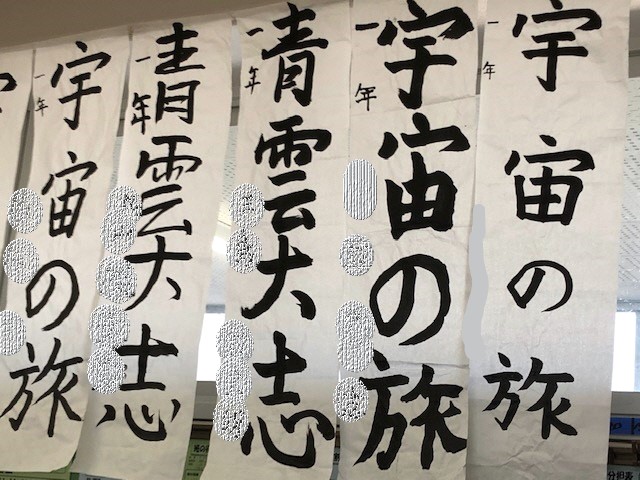 宇宙の旅
一年
宇宙の旅
一年
青雲大志
一年
青雲大志
一年
宇宙の旅
一年